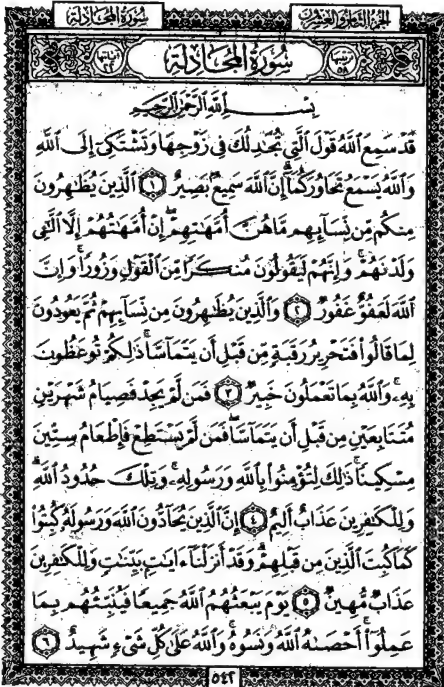 سُورَةُ المُجَادلَة الجُزءُ الثَّامِنُ وَالعِشْرُون
سُورَةُ المُجَادلَة
بِسْمِ ٱللَّهِ ٱلرَّحْمَٰنِ ٱلرَّحِيمِ
قَدْ سَمِعَ ٱللَّهُ قَوْلَ ٱلَّتِي تُجَٰدِلُكَ فِي زَوْجِهَا وَتَشْتَكِيٓ إِلَى ٱللَّهِ
وَٱللَّهُ يَسْمَعُ تَحَاوُرَكُمَآ إِنَّ ٱللَّهَ سَمِيعٌۢ بَصِيرٌ ١ ٱلَّذِينَ يُظَٰهِرُونَ
مِنكُم مِّن نِّسَآئِهِم مَّا هُنَّ أُمَّهَٰتِهِمْ إِنْ أُمَّهَٰتُهُمْ إِلَّا ٱلَّٰٓـِٔي
وَلَدْنَهُمْ وَإِنَّهُمْ لَيَقُولُونَ مُنكَرًا مِّنَ ٱلْقَوْلِ وَزُورًا وَإِنَّ
ٱللَّهَ لَعَفُوٌّ غَفُورٌ ٢ وَٱلَّذِينَ يُظَٰهِرُونَ مِن نِّسَآئِهِمْ ثُمَّ يَعُودُونَ
لِمَا قَالُوا۟ فَتَحْرِيرُ رَقَبَةٍ مِّن قَبْلِ أَن يَتَمَآسَّا ذَٰلِكُمْ تُوعَظُونَ
بِهِۦ وَٱللَّهُ بِمَا تَعْمَلُونَ خَبِيرٌ ٣ فَمَن لَّمْ يَجِدْ فَصِيَامُ شَهْرَيْنِ
مُتَتَابِعَيْنِ مِن قَبْلِ أَن يَتَمَآسَّا فَمَن لَّمْ يَسْتَطِعْ فَإِطْعَامُ سِتِّينَ
مِسْكِينًا ذَٰلِكَ لِتُؤْمِنُوا۟ بِٱللَّهِ وَرَسُولِهِۦ وَتِلْكَ حُدُودُ ٱللَّهِ
وَلِلْكَٰفِرِينَ عَذَابٌ أَلِيمٌ ٤ إِنَّ ٱلَّذِينَ يُحَآدُّونَ ٱللَّهَ وَرَسُولَهُۥ كُبِتُوا۟
كَمَا كُبِتَ ٱلَّذِينَ مِن قَبْلِهِمْ وَقَدْ أَنزَلْنَآ ءَايَٰتٍۭ بَيِّنَٰتٍ وَلِلْكَٰفِرِينَ
عَذَابٌ مُّهِينٌ ٥ يَوْمَ يَبْعَثُهُمُ ٱللَّهُ جَمِيعًا فَيُنَبِّئُهُم بِمَا
عَمِلُوٓا۟ أَحْصَىٰهُ ٱللَّهُ وَنَسُوهُ وَٱللَّهُ عَلَىٰ كُلِّ شَىْءٍ شَهِيدٌ ٦
٥٤٢